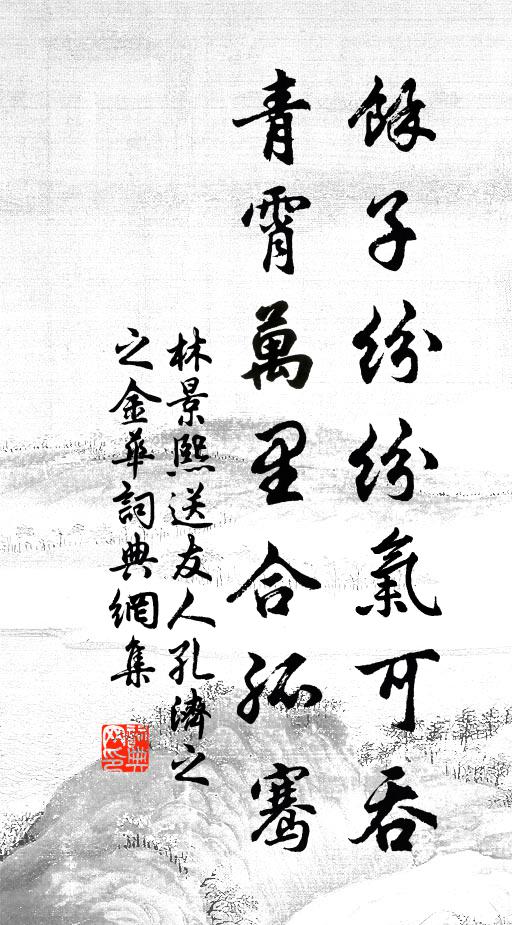 餘子紛紛氣可吞
青霄萬里合孤騫
林景熙送友人孔濟之
之金華詞典網集